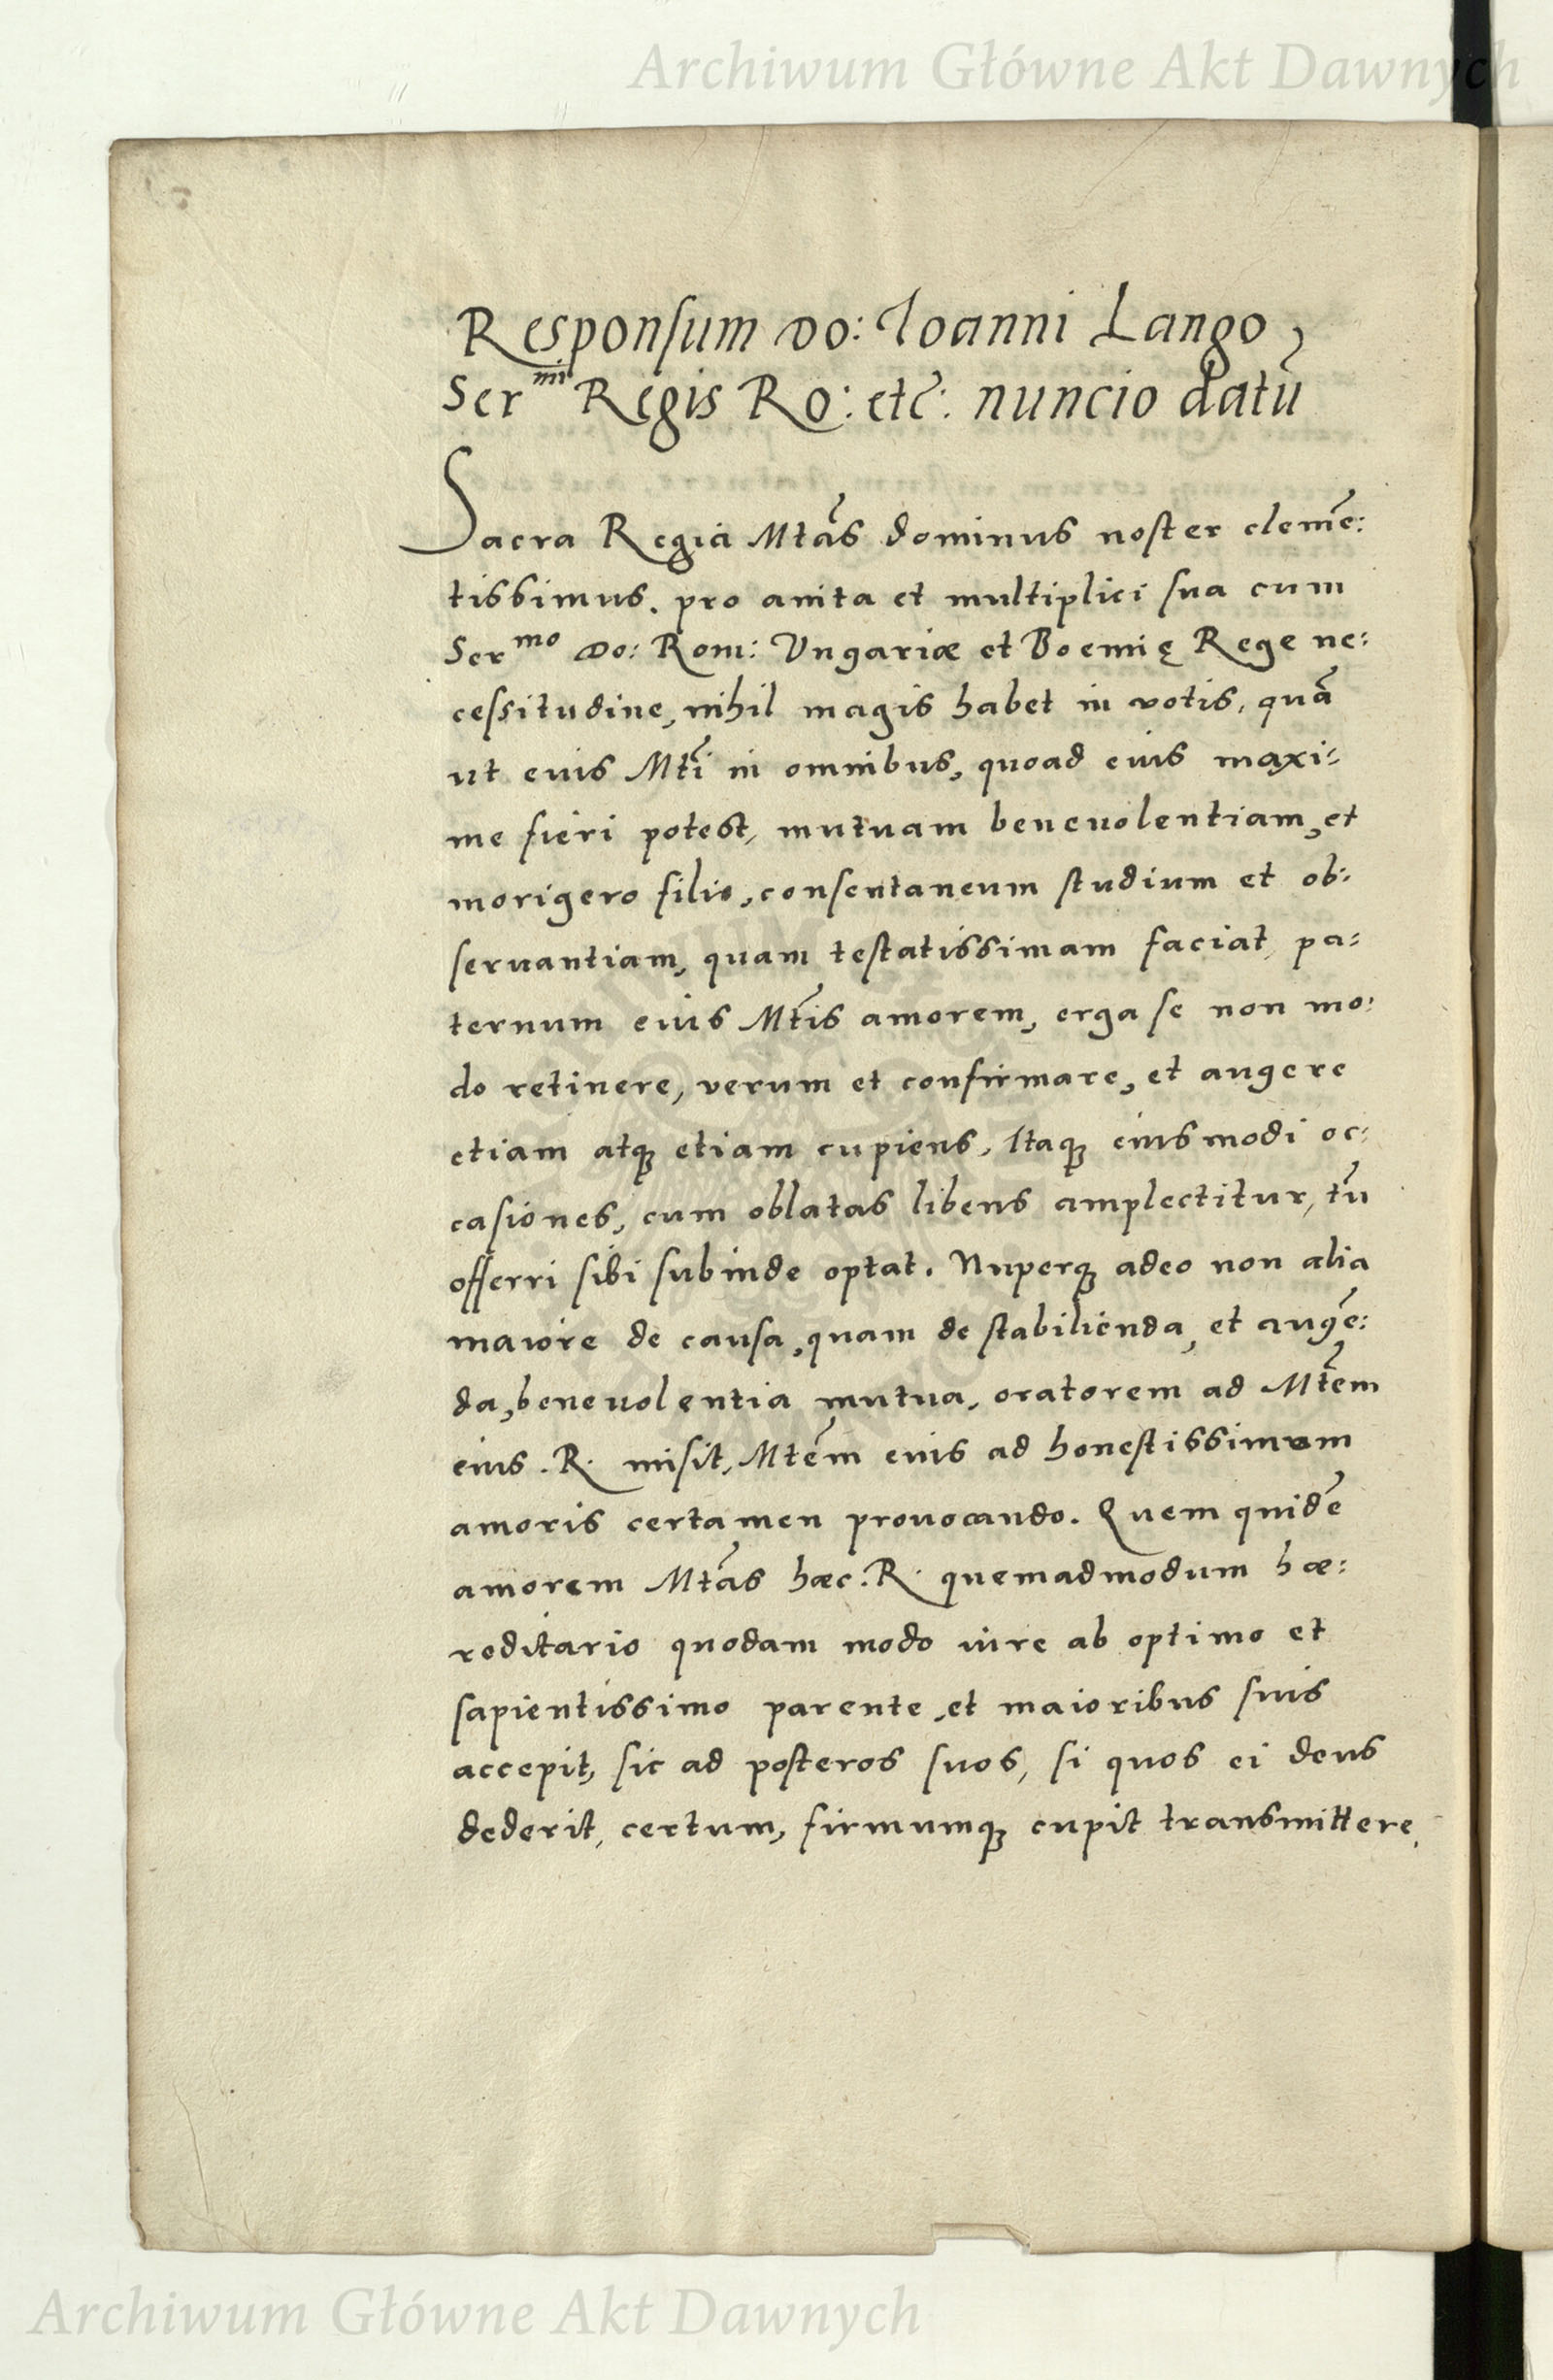 Archiwum Główne Akt Dawnych
Responsum Do: Ioanni Lango,
Ser^mi Regis Ro: etc̃: nuncio datũ
Sacra Regia Mtãs dominus noster clemẽ:
tissimus, pro auita et multiplici sua cum
Ser^mo Do: Rom: Vngariæ et Boemię Rege ne:
cessitudine, nihil magis habet in votis, quã
ut eius Mtĩ in omnibus, quoad eius maxi-
me fieri potest, mutuam beneuolentiam, et
morigero filio, consentaneum studium et ob-
seruantiam, quam testatissimam faciat, pa-
ternum eius Mtĩs amorem, erga se non mo:
do retinere, verum et confirmare, et augere
etiam atqꝫ etiam cupiens, Itaqꝫ eiusmodi oc:
casiones, cum oblatas libens amplectitur, tũ
offerri sibi subinde optat. Nuperqꝫ adeo non alia
maiore de causa, quam de stabilienda, et augẽ:
da, beneuolentia mutua, oratorem ad Mtẽm
eius .R. misit, Mtẽm eius ad honestissimum
amoris certamen prouocando. Quem quidẽ
amorem Mtãs hæc .R. quemadmodum hæ:
reditario quodam modo iure ab optimo et
sapientissimo parente, et maioribus suis
accepit, sic ad posteros suos, si quos ei deus
dederit, certum, firmumqꝫ cupit transmittere,
Archiwum Główne Akt Dawnych